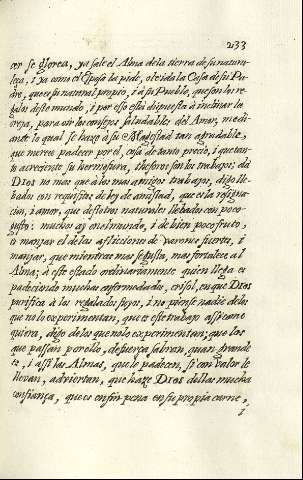 233
cer se glorea, ya sale el Alma de la tierra de su natura-
leza, i ya como el Esposo la pide, olvida la Casa de su Pa-
dre, que es su natural propio, i a su Pueblo, que son los re-
galos deste mundo, i por eso está dispuesta à inclinar la
oreja, para oir los consejos saludables del Amor, me di-
ante lo qual se haze à su Magestad tan agradable,
que merece padecer por el, cosa de tanto precio, i que tan-
to acreciente su hermosura, thesoros son los trabajos; da
Dios no mas que à los mas amigos trabajos, digo lle-
bados con requisitos de ley de amistad, que es la resigna-
cion, i amor, que destotros naturales llebados con poco
gusto: muchos ay en el mundo, i de bien poco fruto,
es manjar el de las aflicciones de varones fuertes, i
manjar, que mientras mas se gusta, mas fortalece al
Alma; à este estado ordinariamente quien llega es
padeciendo muchas enfermedades, crisol, en que Dios
purifica à los regalados suyos, i no piense nadie de los
que no lo experimentan, que es este trabajo assi como
quiera, digo de los que no lo experimentem; que los
que passan por ello, de fuerça sabran, quan grande
es, i assi las Almas, que lo padecen, si con valor le
llevan, adviertan, que haze Dios dellas mucha
confiança, que es en fin pena en su propia carne,
i